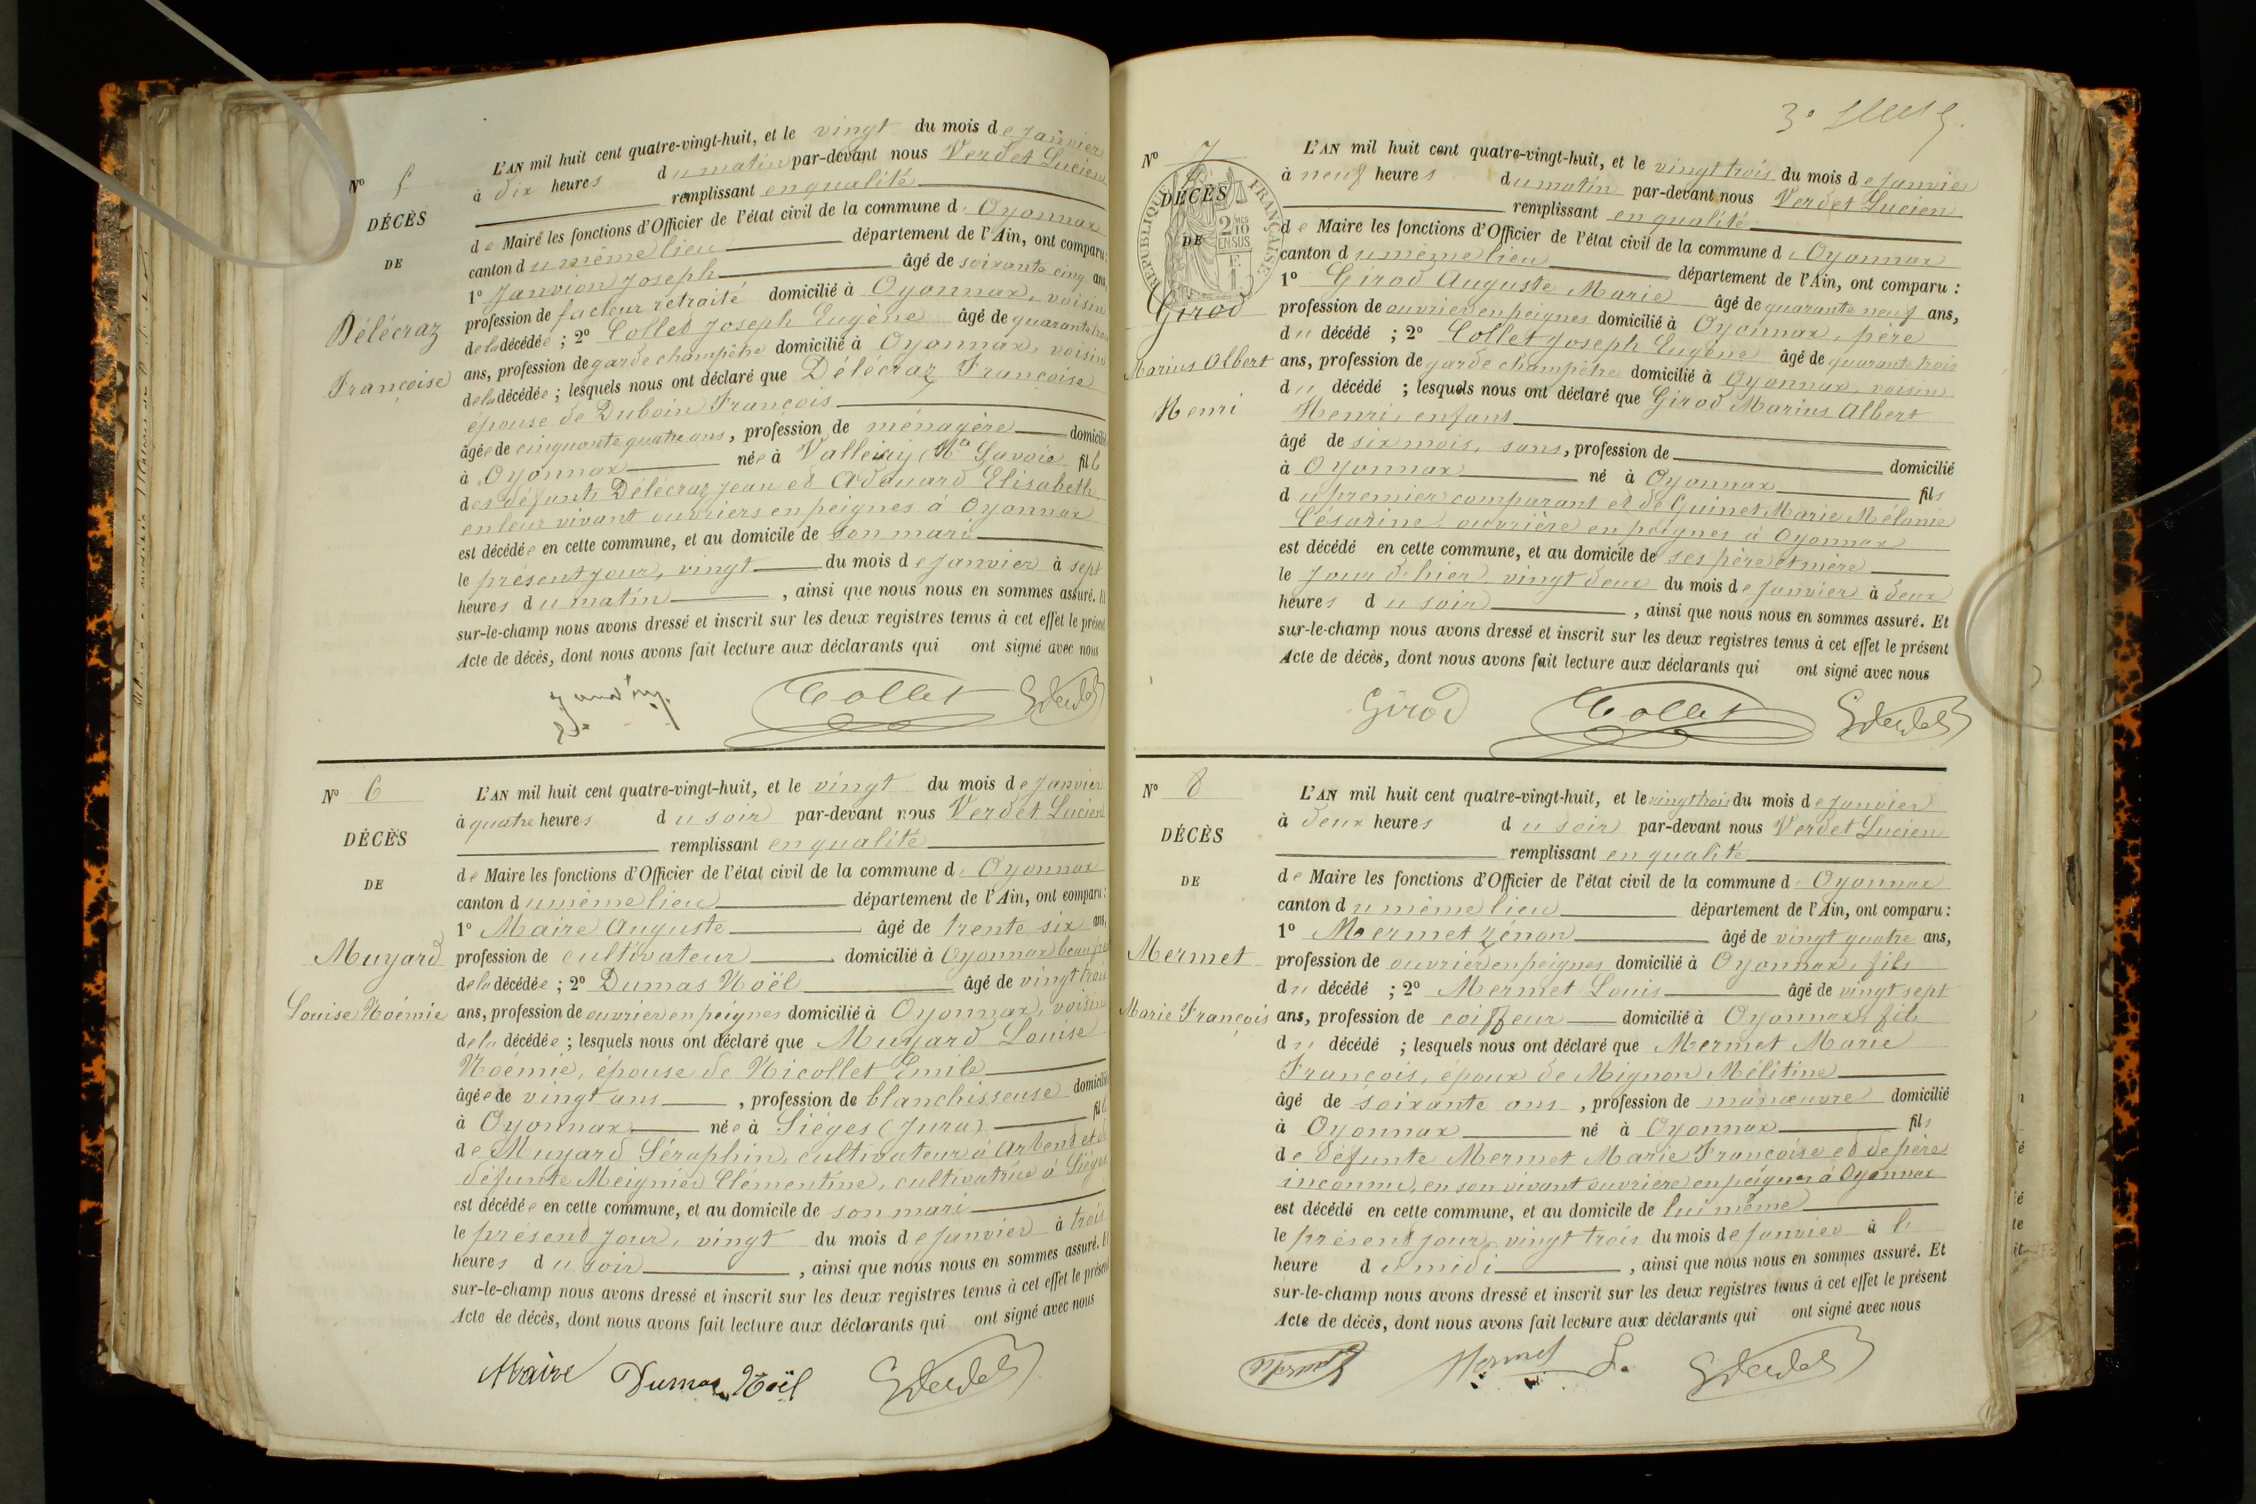 L'AN mil huit cent quatre-vingt-huit, et le vingt du mois de janvier
à dix heures du matin par-devant nous Verdet Lucien
remplissant en qualité
de Maire les fonctions d'Officier de l'état civil de la commune d'Oyonnax
canton du même lieu département de l'Ain, ont comparu :
1º Janvion Joseph âgé de soixante cinq ans,
profession de facteur retraité domicilié à Oyonnax, voisin
de la décédée ; 2º Collet Joseph Eugène âgé de quarante trois
ans, profession de garde champêtre domicilié à Oyonnax, voisin
de la décédée ; lesquels nous ont déclaré que Délécraz Françoise
épouse de Duboin François
âgée de cinquante quatre ans, profession de ménagère domicilié
à Oyonnax née à Valleiry (Hte Savoie fille
des défunts Délécraz Jean et Adouard Elisabeth
en leur vivant ouvriers en peignes à Oyonnax
est décédée en cette commune, et au domicile de son mari
le présent jour, vingt du mois de janvier à sept
heures du matin, ainsi que nous nous en sommes assuré. Et
sur-le-champ nous avons dressé et inscrit sur les deux registres tenus à cet effet le présent
Acte de décès, dont nous avons fait lecture aux déclarants qui ont signé avec nous
Nº 5
DÉCÈS
DE
Délécraz
Françoise
Collet
Nº 6
DÉCÈS
DE
Muyard
Louise Noémie
L'AN mil huit cent quatre-vingt-huit, et le vingt du mois de janvier
à quatre heures du soir par-devant nous Verdet Lucien
remplissant en qualité
de Maire les fonctions d'Officier de l'état civil de la commune d'Oyonnax
canton du même lieu département de l'Ain, ont comparu :
1º Maire Auguste âgé de trente six ans,
profession de cultivateur domicilié à Oyonnax beau frère
de la décédée ; 2º Dumas Noël âgé de vingt trois
ans, profession de ouvrier en peignes domicilié à Oyonnax, voisin
de la décédée ; lesquels nous ont déclaré que Muyard Louise
Noémie, épouse de Nicollet Emile
âgée de vingt ans, profession de blanchisseuse domicilié
à Oyonnax née à Siéges (Jura) fille
de Muyard Séraphin, cultivateur à Arbent et de
défunte Meignier Clémentine, cultivatrice à Siéges
est décédée en cette commune, et au domicile de son mari
le présent jour, vingt du mois de janvier à trois
heures du soir, ainsi que nous nous en sommes assuré. Et
sur-le-champ nous avons dressé et inscrit sur les deux registres tenus à cet effet le présent
Acte de décès, dont nous avons fait lecture aux déclarants qui ont signé avec nous
Maire Dumas Noël
Nº 7
DÉCÈS
DE
RÉPUBLIQUE FRANÇAISE
2/10 EN SUS
Girod
Marius Albert
Henri
L'AN mil huit cent quatre-vingt-huit, et le vingt trois du mois de janvier
à neuf heures du matin par-devant nous Verdet Lucien
remplissant en qualité
de Maire les fonctions d'Officier de l'état civil de la commune d'Oyonnax
canton du même lieu département de l'Ain, ont comparu :
1º Girod Auguste Marie âgé de quarante neuf ans,
profession de ouvrier en peignes domicilié à Oyonnax, père
du décédé ; 2º Collet Joseph Eugène âgé de quarante trois
ans, profession de garde champêtre domicilié à Oyonnax, voisin
du décédé ; lesquels nous ont déclaré que Girod Marius Albert
Henri, enfant
âgé de six mois, sans, profession de domicilié
à Oyonnax né à Oyonnax fils
du premier comparant et de Guinet Marie Mélanie
Césarine ouvrière en peignes à Oyonnax
est décédé en cette commune, et au domicile de ses père et mère
le jour d'hier vingt deux du mois de janvier à deux
heures du soir, ainsi que nous nous en sommes assuré. Et
sur-le-champ nous avons dressé et inscrit sur les deux registres tenus à cet effet le présent
Acte de décès, dont nous avons fait lecture aux déclarants qui ont signé avec nous
Girod Collet
Nº 8
DÉCÈS
DE
Mermet
Marie François
L'AN mil huit cent quatre-vingt-huit, et le vingt trois du mois de janvier
à deux heures du soir par-devant nous Verdet Lucien
remplissant en qualité
de Maire les fonctions d'Officier de l'état civil de la commune d'Oyonnax
canton du même lieu département de l'Ain, ont comparu :
1º Mermet Zénon âgé de vingt quatre ans,
profession de ouvrier en peignes domicilié à Oyonnax, fils
du décédé ; 2º Mermet Louis âgé de vingt sept
ans, profession de coiffeur domicilié à Oyonnax, fils
du décédé ; lesquels nous ont déclaré que Mermet Marie
François, époux de Mignon Mélitine
âgé de soixante ans, profession de manœuvre domicilié
à Oyonnax né à Oyonnax fils
de défunte Mermet Marie Françoise et de père
inconnu, en son vivant ouvrière en peignes à Oyonnax
est décédé en cette commune, et au domicile de lui même
le présent jour, vingt trois du mois de janvier à l'
heure du midi, ainsi que nous nous en sommes assuré. Et
sur-le-champ nous avons dressé et inscrit sur les deux registres tenus à cet effet le présent
Acte de décès, dont nous avons fait lecture aux déclarants qui ont signé avec nous
Mermet Mermet L.